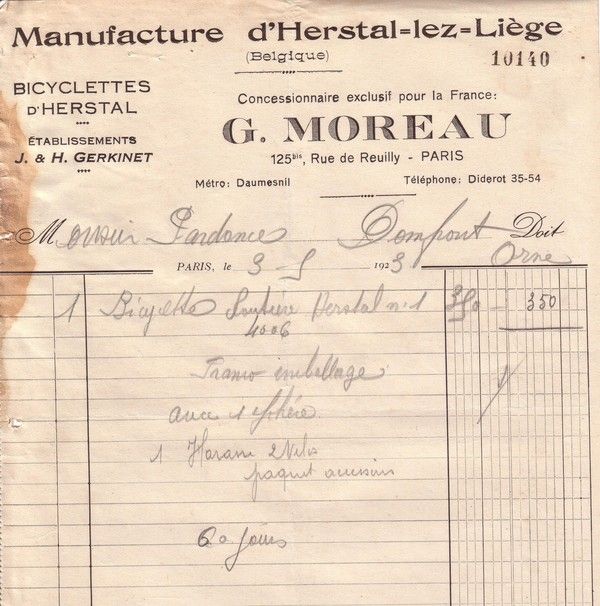 Manufacture d'Herstal=lez=Liège
(Belgique)
10140
BICYCLETTES
D'HERSTAL
ÉTABLISSEMENTS
J. & H. GERKINET
Concessionnaire exclusif pour la France:
G. MOREAU
125bis, Rue de Reuilly - PARIS
Métro: Daumesnil
Téléphone: Diderot 35-54
Monsieur Dompont Doit
Orne
PARIS, le 3-5 1923
1 Bicyclette Herstal n°1 350 - 350
4006
Franco emballage
avec 1 sphère
1 2 Vélos
paquet
60 jours